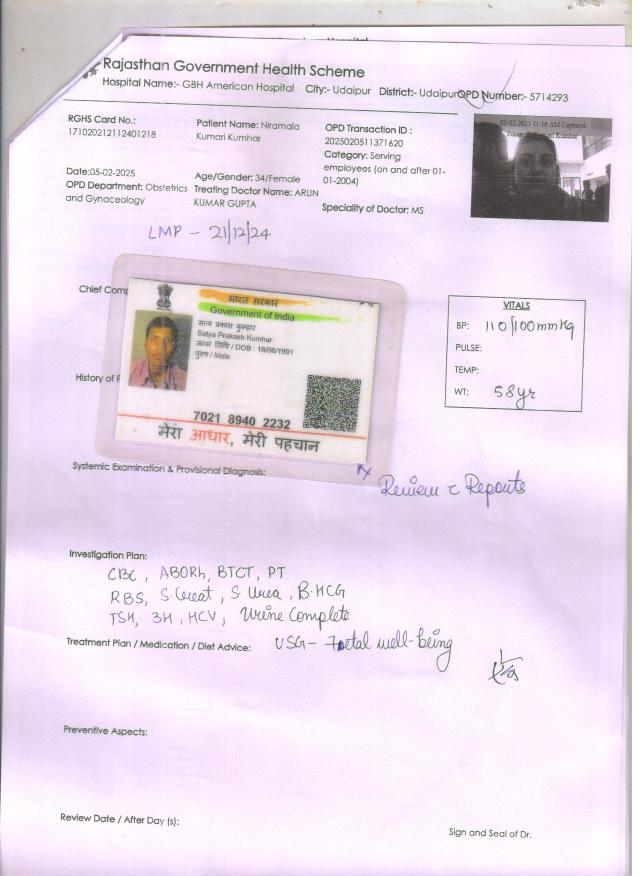 Rajasthan Government Health Scheme
Hospital Name:- GBH American Hospital City:- Udaipur District:- Udaipur OPD Number:- 5714293
RGHS Card No.:
171020212112401218
Patient Name: Niramala
Kumari Kumhar
OPD Transaction ID :
2025020511371620
Category: Serving
employees (on and after 01-
01-2004)
05-02-2025 11:36 AM Captured
Kumhar
Date:05-02-2025
OPD Department: Obstetrics
and Gynaceology
Age/Gender: 34/Female
Treating Doctor Name: ARUN
KUMAR GUPTA
Speciality of Doctor: MS
LMP - 21/12/24
Chief Comp
भारत सरकार
Government of India
सत्य प्रकाश कुम्हार
Satya Prakash Kumhar
जन्म तिथि / DOB : 16/06/1991
पुरुष / Male
7021 8940 2232
मेरा आधार, मेरी पहचान
VITALS
BP: 110/100mmHg
PULSE:
TEMP:
WT: 58yr
History of P
Systemic Examination & Provisional Diagnosis:
Review c Reports
Investigation Plan:
CBC, ABORh, BTCT, PT
RBS, S.Creat, S Urea, B.HCG
TSH, 3H, HCV, Urine Complete
Treatment Plan / Medication / Diet Advice: USG- Foetal well-being
Preventive Aspects:
Review Date / After Day (s):
Sign and Seal of Dr.